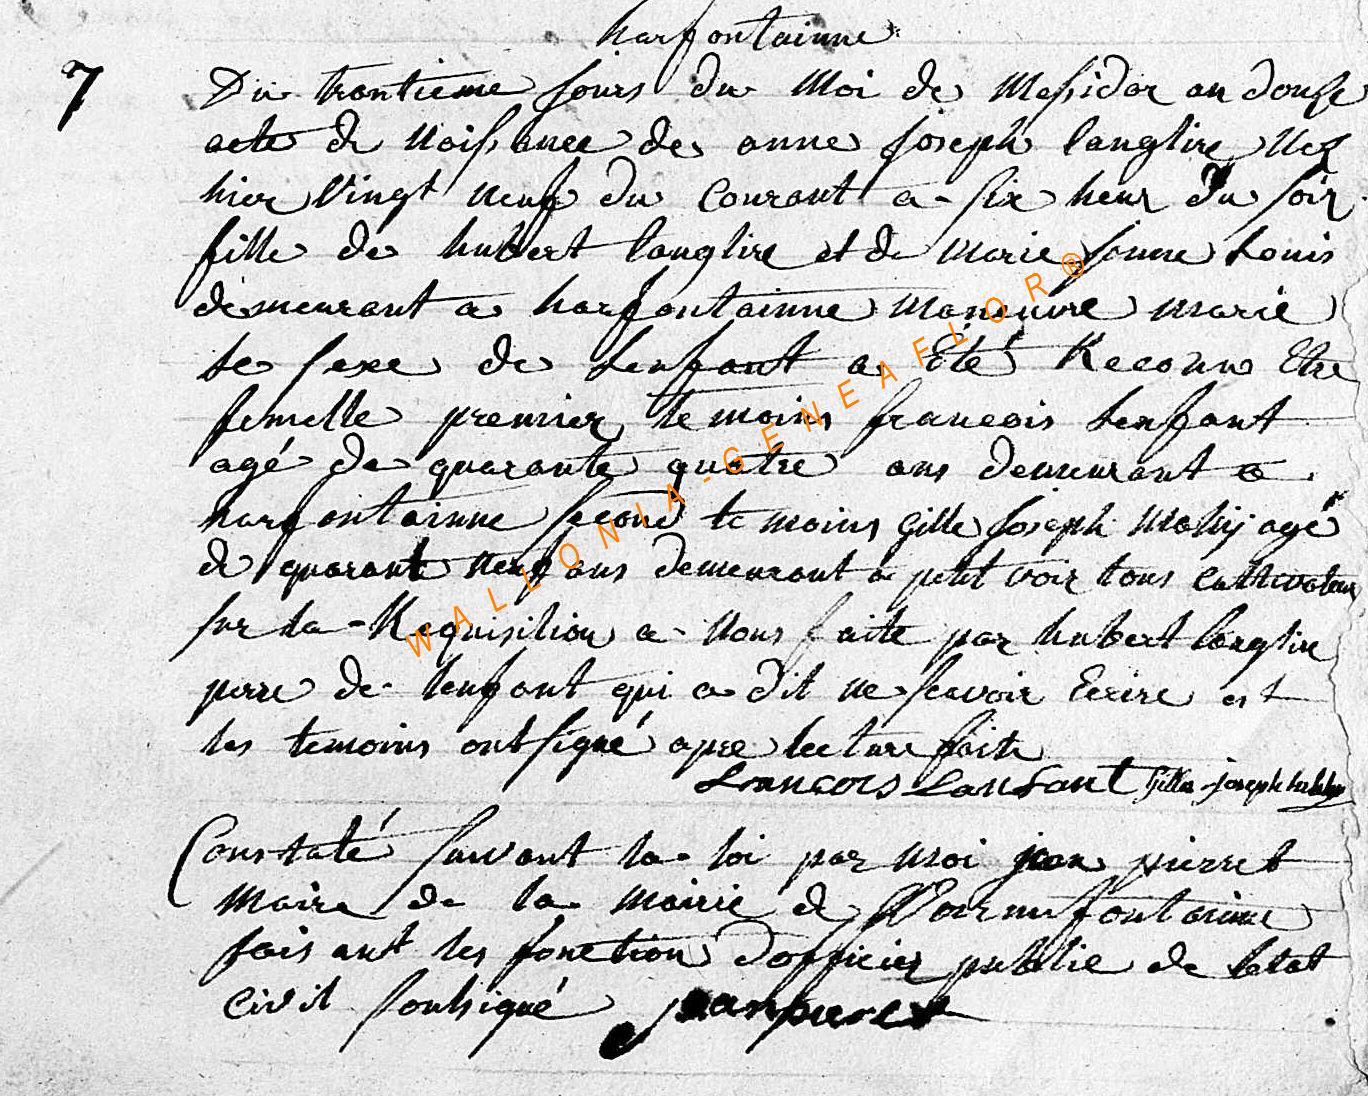 harfontainne
7
Du trantieme jours du Moi de Messidor an douse
acte de Naissance de anne joseph langlire Nez
hier Vingt neuf du Courant a six heur du soir
fille de hubert langlire et de Marie jonne Louis
demeurant a harfontainne Maneuvre marié
le sexe de Lenfant a Été Reconu Etre
femelle premier temoins francois Lenfant
agé de quarante quatre ans demeurant a
harfontainne second temoins Gille joseph agé
de quarant neuf ans demeurant a petit voir tous Cultivateur
sur la Requisition a Nous faite par hubert langlire
perre de lenfant qui a dit ne scavoir Ecrire est
les temoins ont signé apre lecture faite
Francois Lanfant Gille joseph
Constaté suivant la loi par moi jean pierret
Maire de la Mairie de
faisant les fonction dofficier publie de letat
Civil soulsigné jean pierret
WALLONIA-GENEAFLOR®